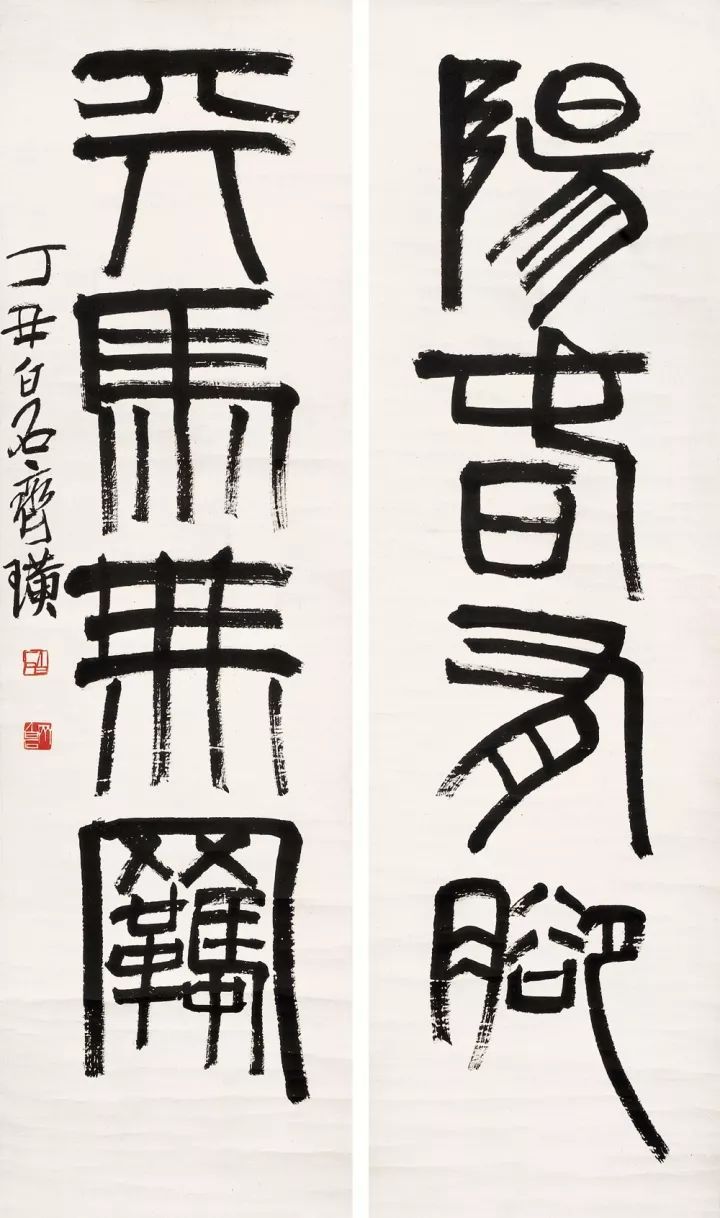 陽春有腳
天馬無羈
丁丑白石齊璜